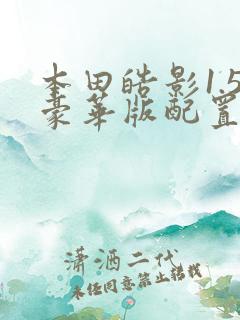 本田皓影1.5
豪华版配置
潇洒二代
未经同意禁止转载